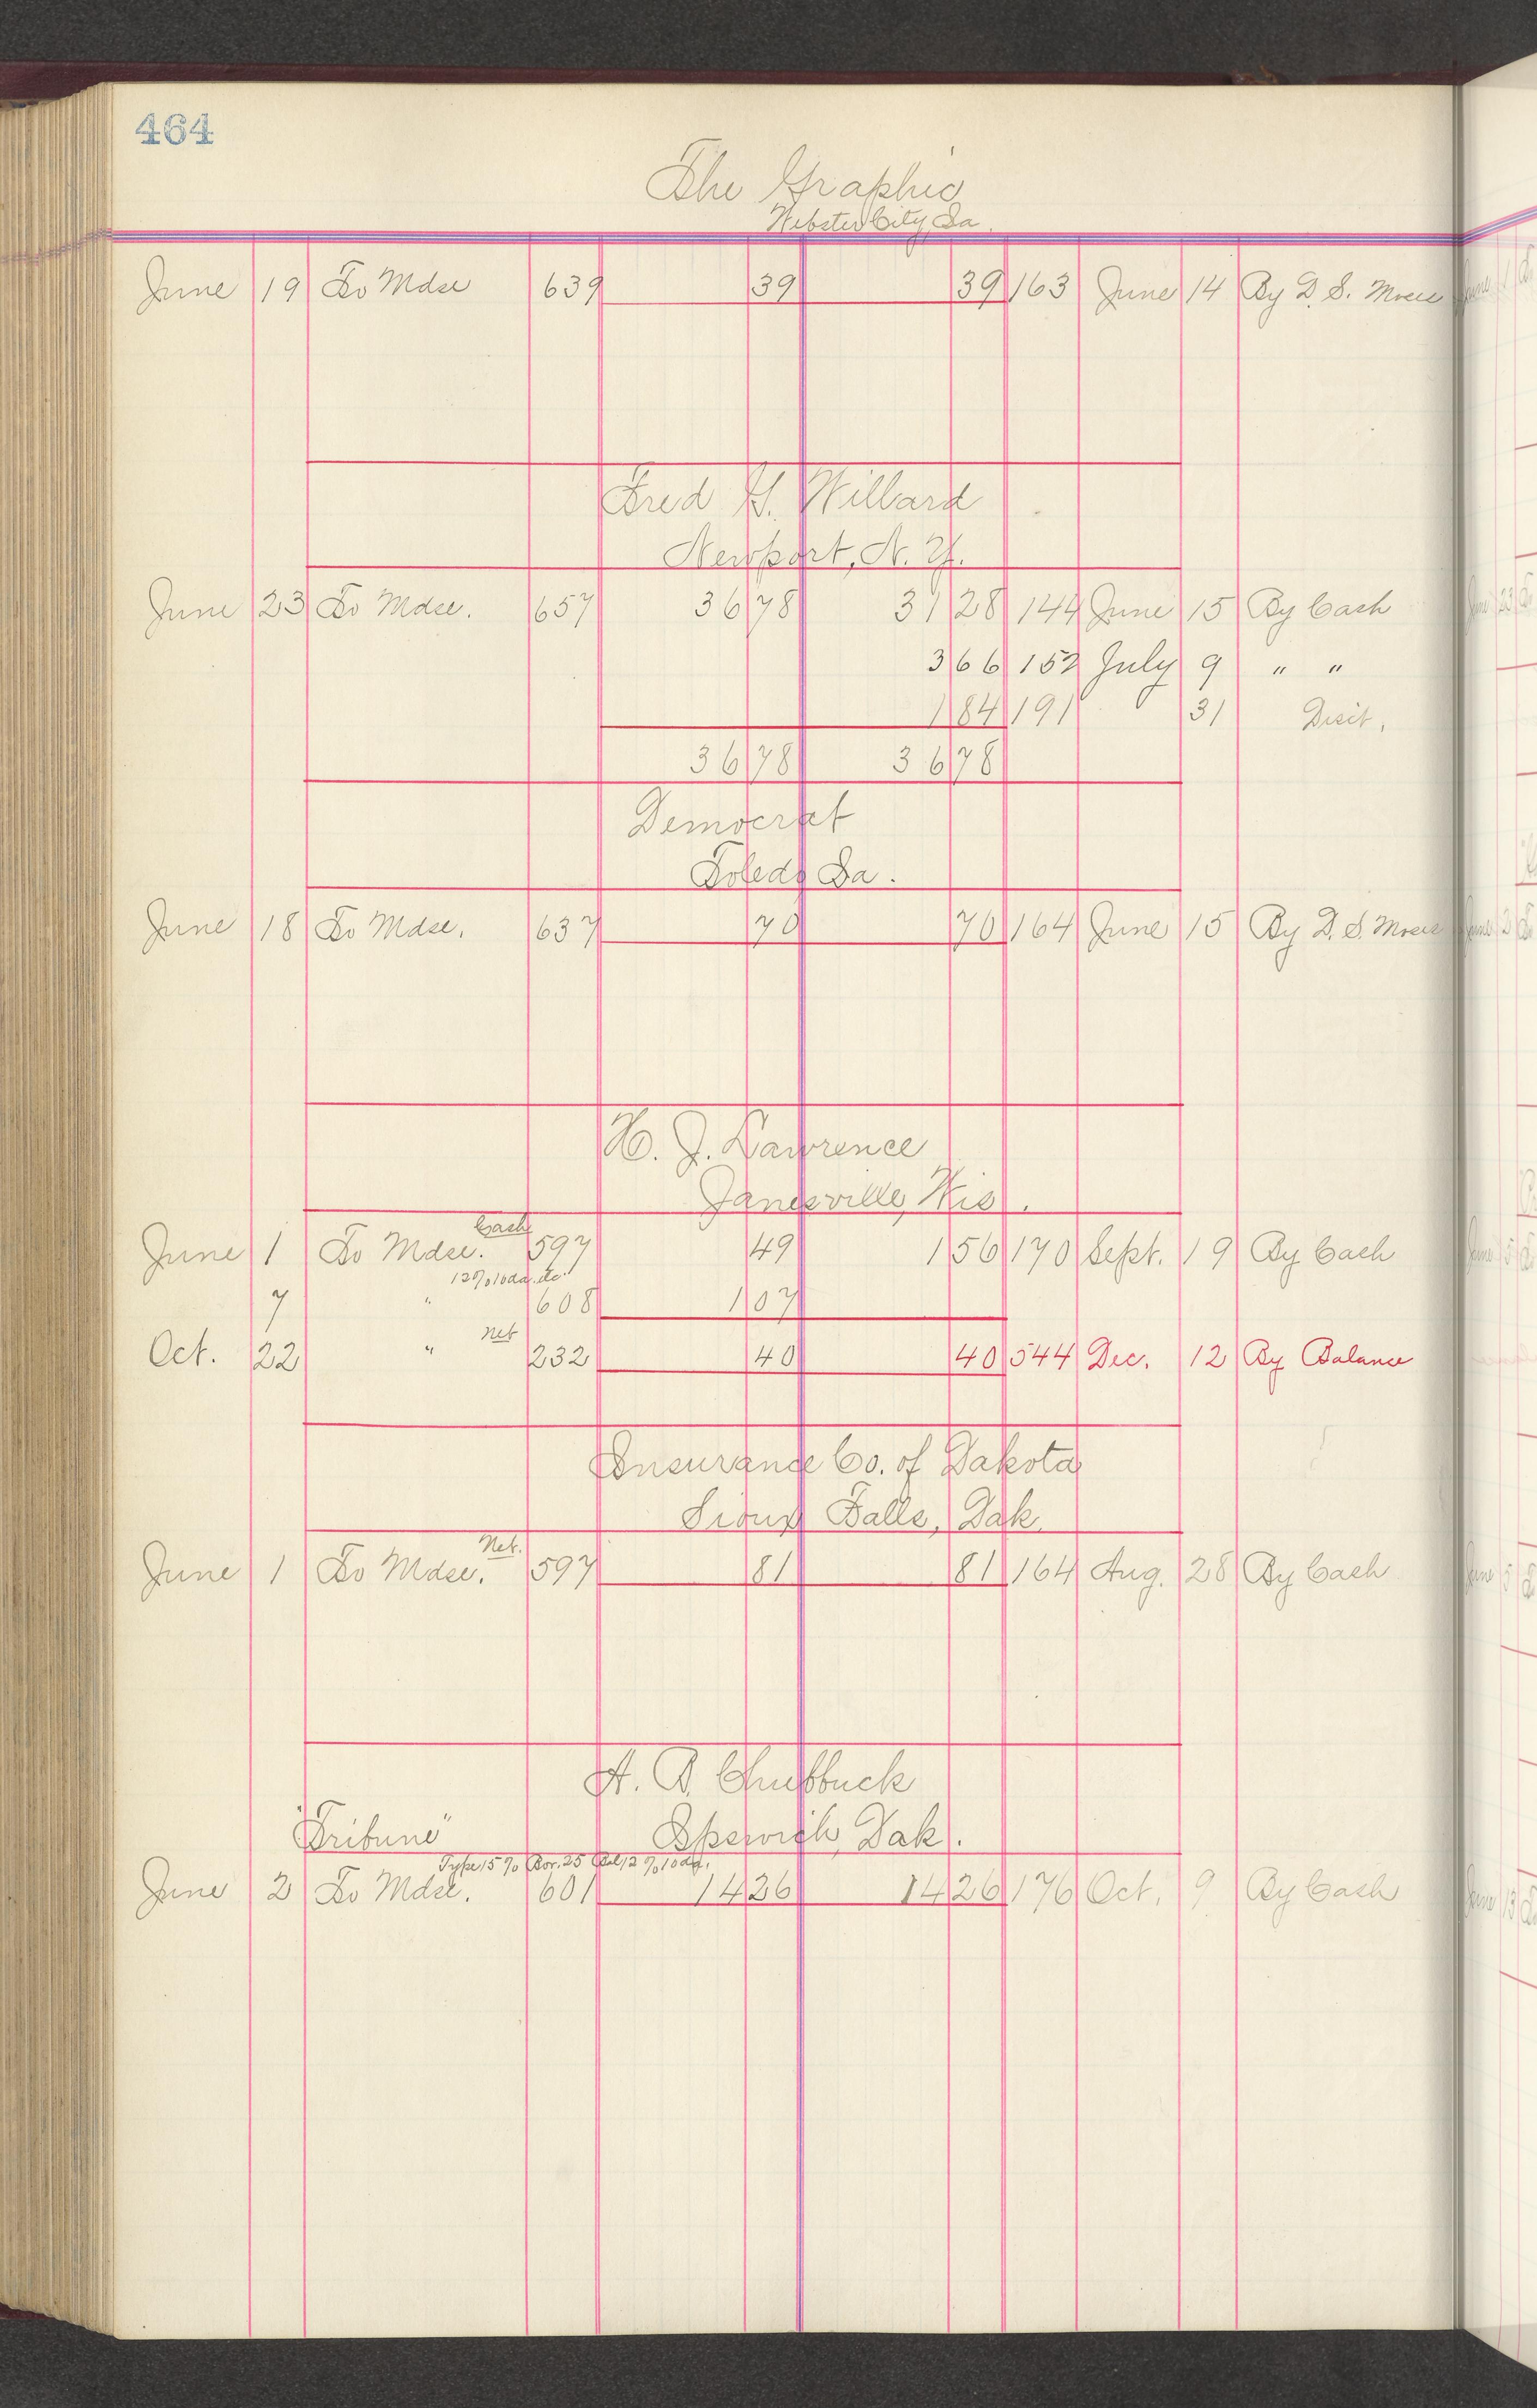 464
The Graphic
Webster City, Ia.
June 19 To Mdse 639 39 39 163 June 14 By D. S. Morse
Fred H. Willard
Newport, N. Y.
June 23 To Mdse. 657 36 78 31 28 144 June 15 By Cash
3 66 152 July 9 " "
1 84 191 31 Disct.
36 78 36 78
Democrat
Toledo Ia.
June 18 To Mdse. 637 70 70 164 June 15 By D. S. Morse
H. J. Lawrence
Janesville, Wis.
Cash
June 1 To Mdse. 597 49 1 56 170 Sept. 19 By Cash
12% 10 da. etc.
7 " 608 1 07
Net
Oct. 22 " 232 40 40 544 Dec. 12 By Balance
Insurance Co. of Dakota
Sioux Falls, Dak.
Net.
June 1 To Mdse. 597 81 81 164 Aug. 28 By Cash
A. B. Chubbuck
"Tribune" Ipswich, Dak.
Type 15% Bor. 25 Bal 12% 10 da.
June 2 To Mdse. 601 14 26 14 26 176 Oct. 9 By Cash